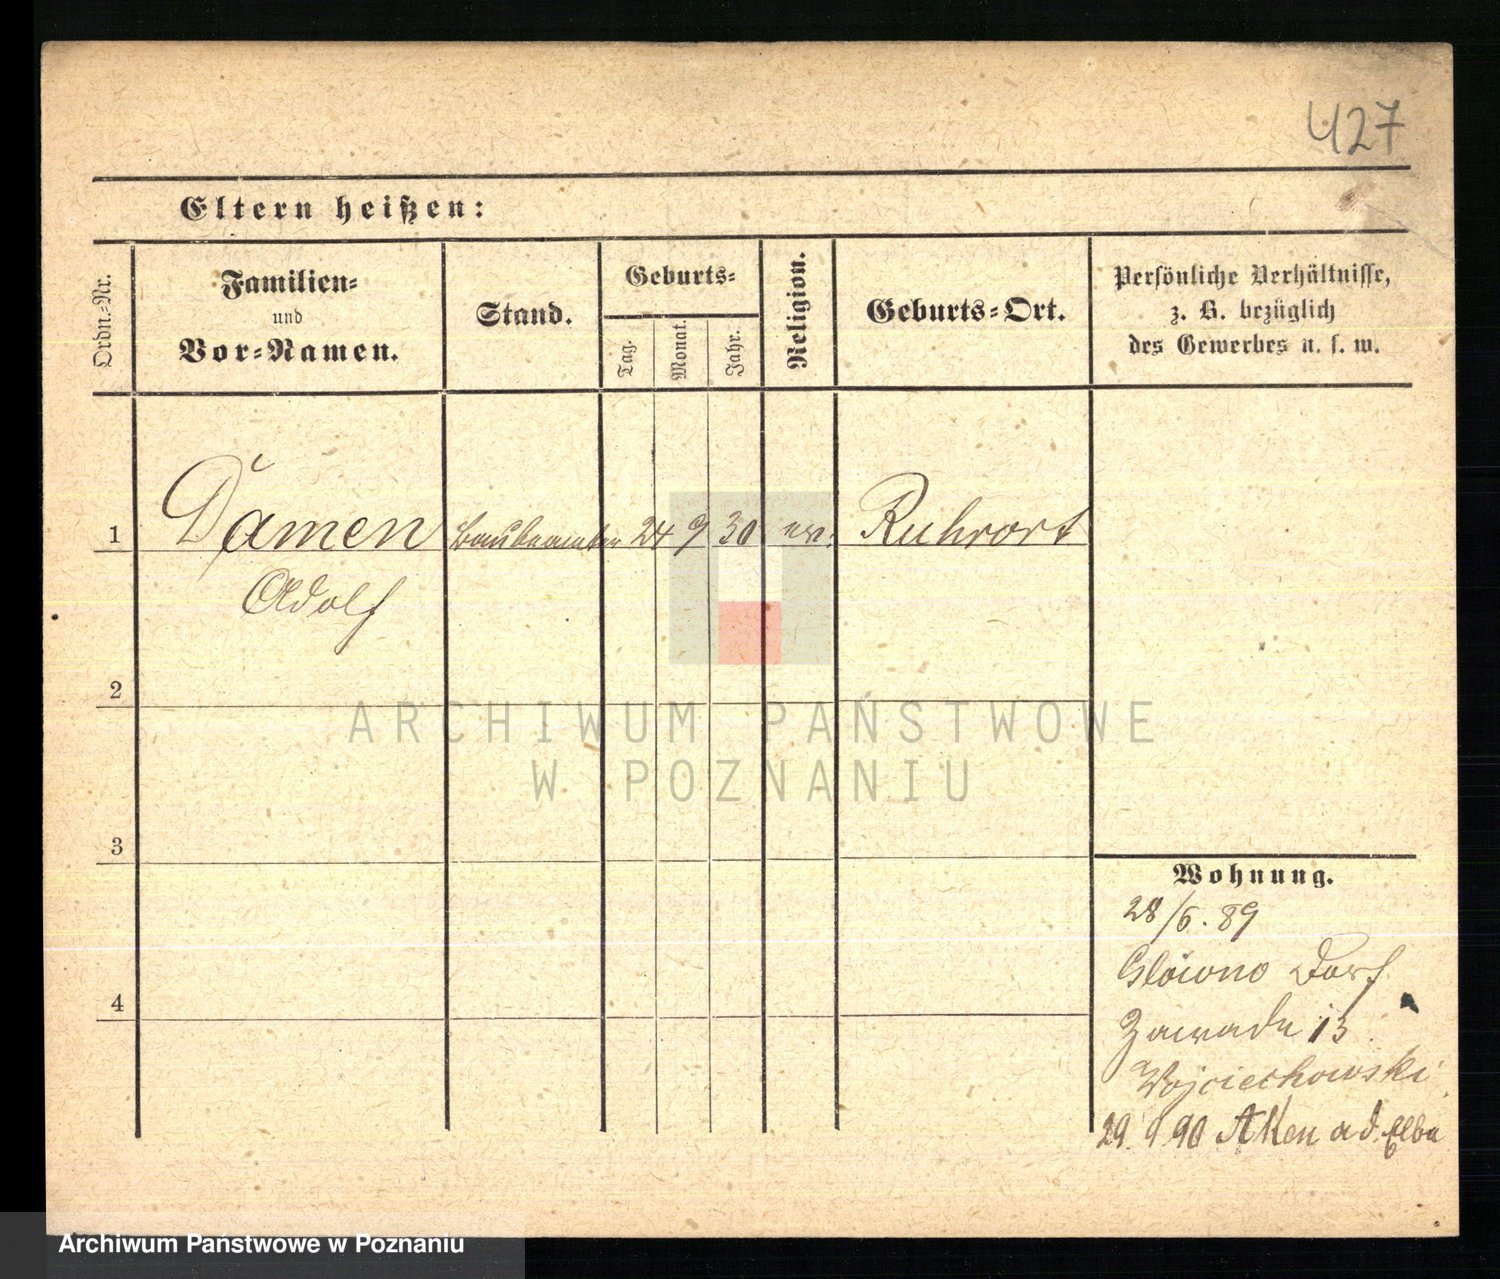 427
Eltern heißen:
Ordn.-Nr.
Familien-
und
Vor-Namen.
Stand.
Geburts-
Tag.
Monat.
Jahr.
Religion.
Geburts-Ort.
Persönliche Verhältnisse,
z. B. bezüglich
des Gewerbes u. s. w.
1 Damen Baubeamter 24 9 30 ev. Ruhrort
Adolf
2
ARCHIWUM PAŃSTWOWE
W POZNANIU
3
Wohnung.
28/6. 89
Glówno Dorf
4
Zawade 13
Wojciechowski
29. 9 90 Aken a d. Elbe
Archiwum Państwowe w Poznaniu